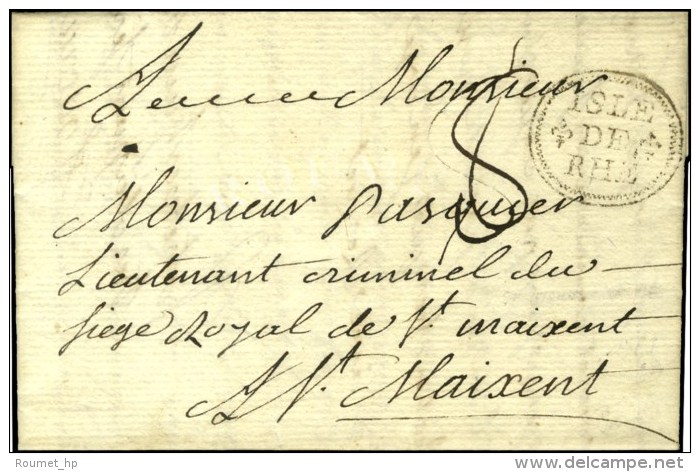 A Monsieur
8
ISLE
DE
RHE
Monsieur Pasquier
Lieutenant criminel du
siege Royal de St. maixent
A St. Maixent
Roumet_hp
delcampe.net